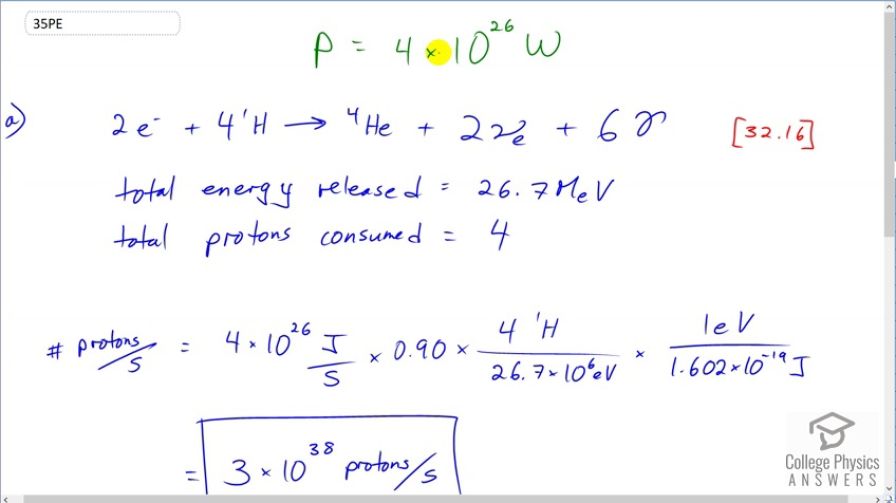 35PE
P = 4 × 10²⁶ W
a) 2e⁻ + 4 ¹H → ⁴He + 2νₑ + 6γ [32.16]
total energy released = 26.7 MeV
total protons consumed = 4
# protons/s = 4 × 10²⁶ J/s × 0.90 × 4 ¹H / 26.7 × 10⁶ eV × 1 eV / 1.602 × 10⁻¹⁹ J
= 3 × 10³⁸ protons/s
College Physics
ANSWERS